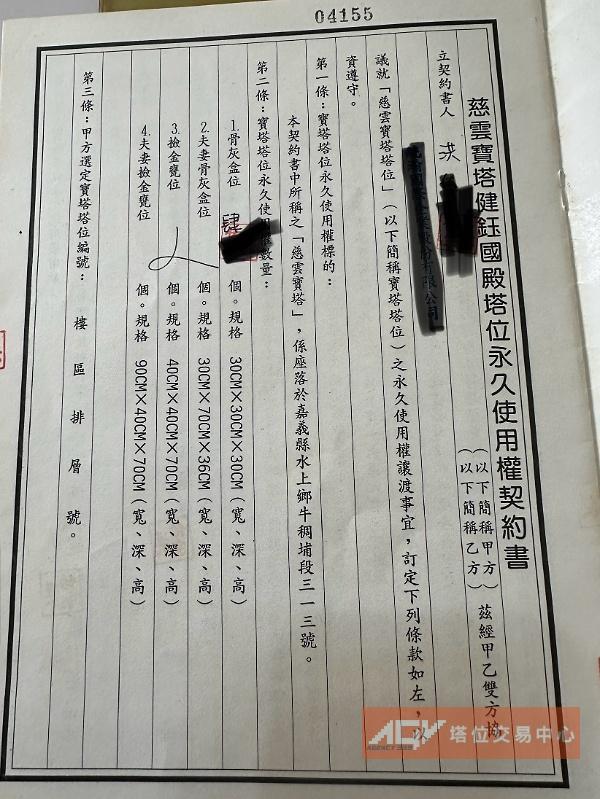 04155
慈雲寶塔健鈺國殿塔位永久使用權契約書
立契約書人
(以下簡稱甲方)
(以下簡稱乙方)
茲經甲乙雙方協
股份有限公司
議就「慈雲寶塔塔位」(以下簡稱寶塔塔位)之永久使用權讓渡事宜,訂定下列條款如左,以
資遵守。
第一條:寶塔塔位永久使用權標的:
本契約書中所稱之「慈雲寶塔」,係座落於嘉義縣水上鄉牛稠埔段三一三號。
第二條:寶塔塔位永久使用權數量:
1.骨灰盒位 肆 個。規格 30CM×30CM×30CM(寬、深、高)
2.夫妻骨灰盒位 個。規格 30CM×70CM×36CM(寬、深、高)
3.撿金甕位 個。規格 40CM×40CM×70CM(寬、深、高)
4.夫妻撿金甕位 個。規格 90CM×40CM×70CM(寬、深、高)
第三條:甲方選定寶塔塔位編號: 樓 區 排 層 號。
ACY 塔位交易中心